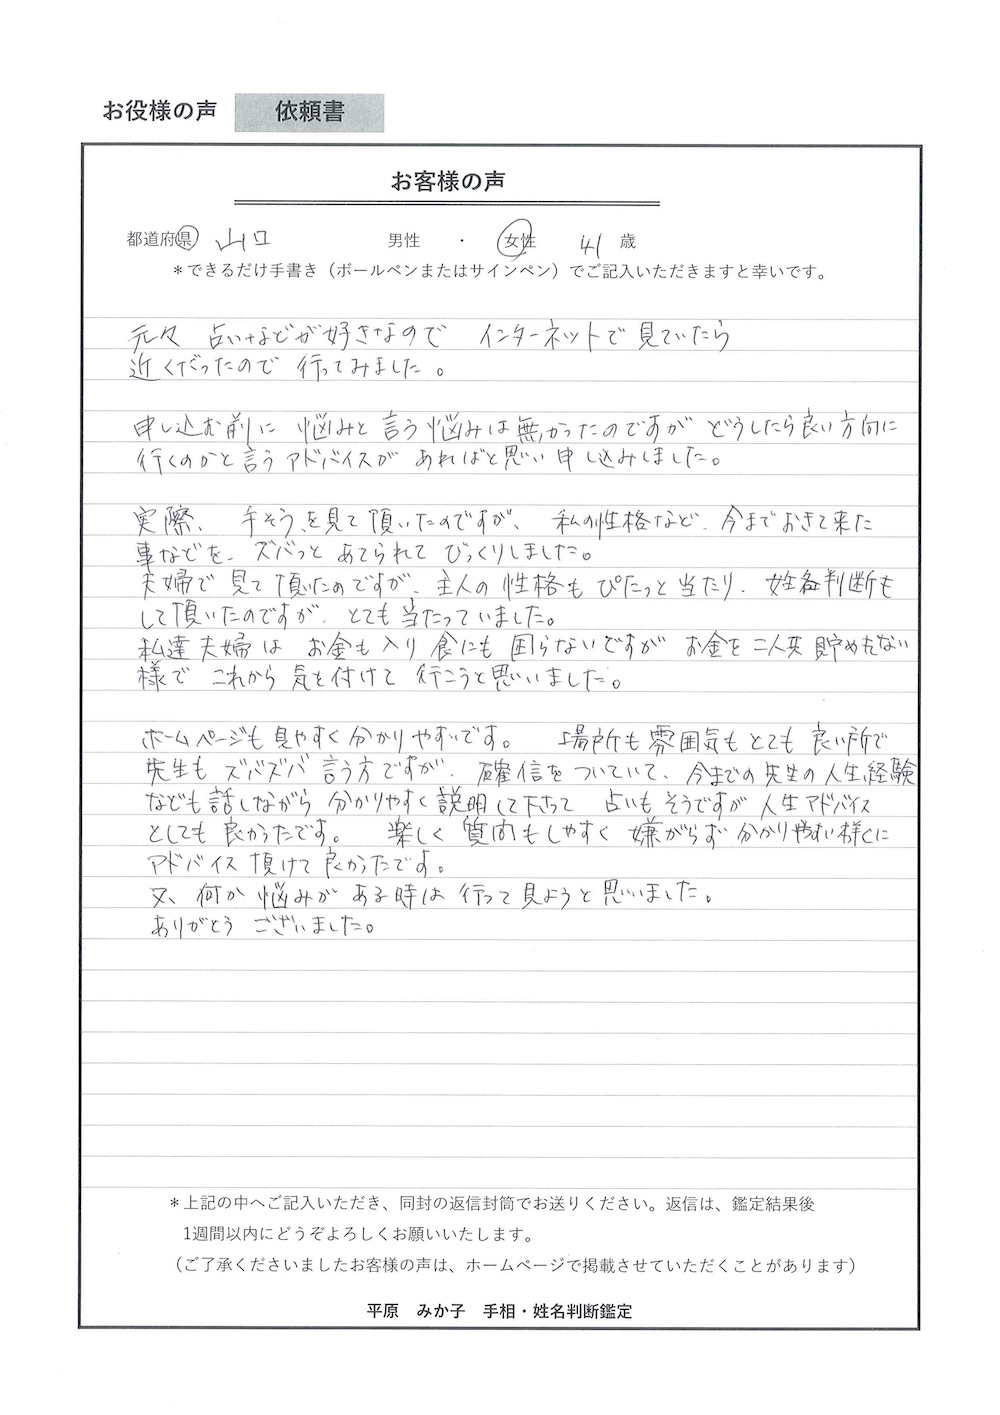 お役様の声 依頼書
お客様の声
都道府県 山口 男性 ・ 女性 41 歳
＊できるだけ手書き（ボールペンまたはサインペン）でご記入いただきますと幸いです。
元々 占いなどが好きなので インターネットで見ていたら
近くだったので 行ってみました。
申し込む前に 悩みと言う悩みは無かったのですが どうしたら良い方向に
行くのかと言うアドバイスが あればと思い申し込みしました。
実際、 手そうを見て頂いたのですが、 私の性格など、今までおきて来た
事などを、ズバっと あてられて びっくりしました。
夫婦で見て頂いたのですが、主人の性格も ぴたっと当たり、姓名判断も
して頂いたのですが、とても当たっていました。
私達夫婦は お金も入り食にも困らないですが お金を二人共貯めれない
様で これから気を付けて 行こうと思いました。
ホームページも見やすく分かりやすいです。 場所も雰囲気もとても良い所で
先生も ズバズバ言う方ですが、確信をついていて、今までの先生の人生経験
なども話しながら 分かりやすく説明して下さって 占いもそうですが人生アドバイス
としても良かったです。 楽しく質問もしやすく嫌がらず分かりやすい様に
アドバイス頂けて良かったです。
又、何か悩みがある時は行って見ようと思いました。
ありがとうございました。
＊上記の中へご記入いただき、同封の返信封筒でお送りください。返信は、鑑定結果後
1週間以内にどうぞよろしくお願いいたします。
（ご了承くださいましたお客様の声は、ホームページで掲載させていただくことがあります）
平原 みか子 手相・姓名判断鑑定